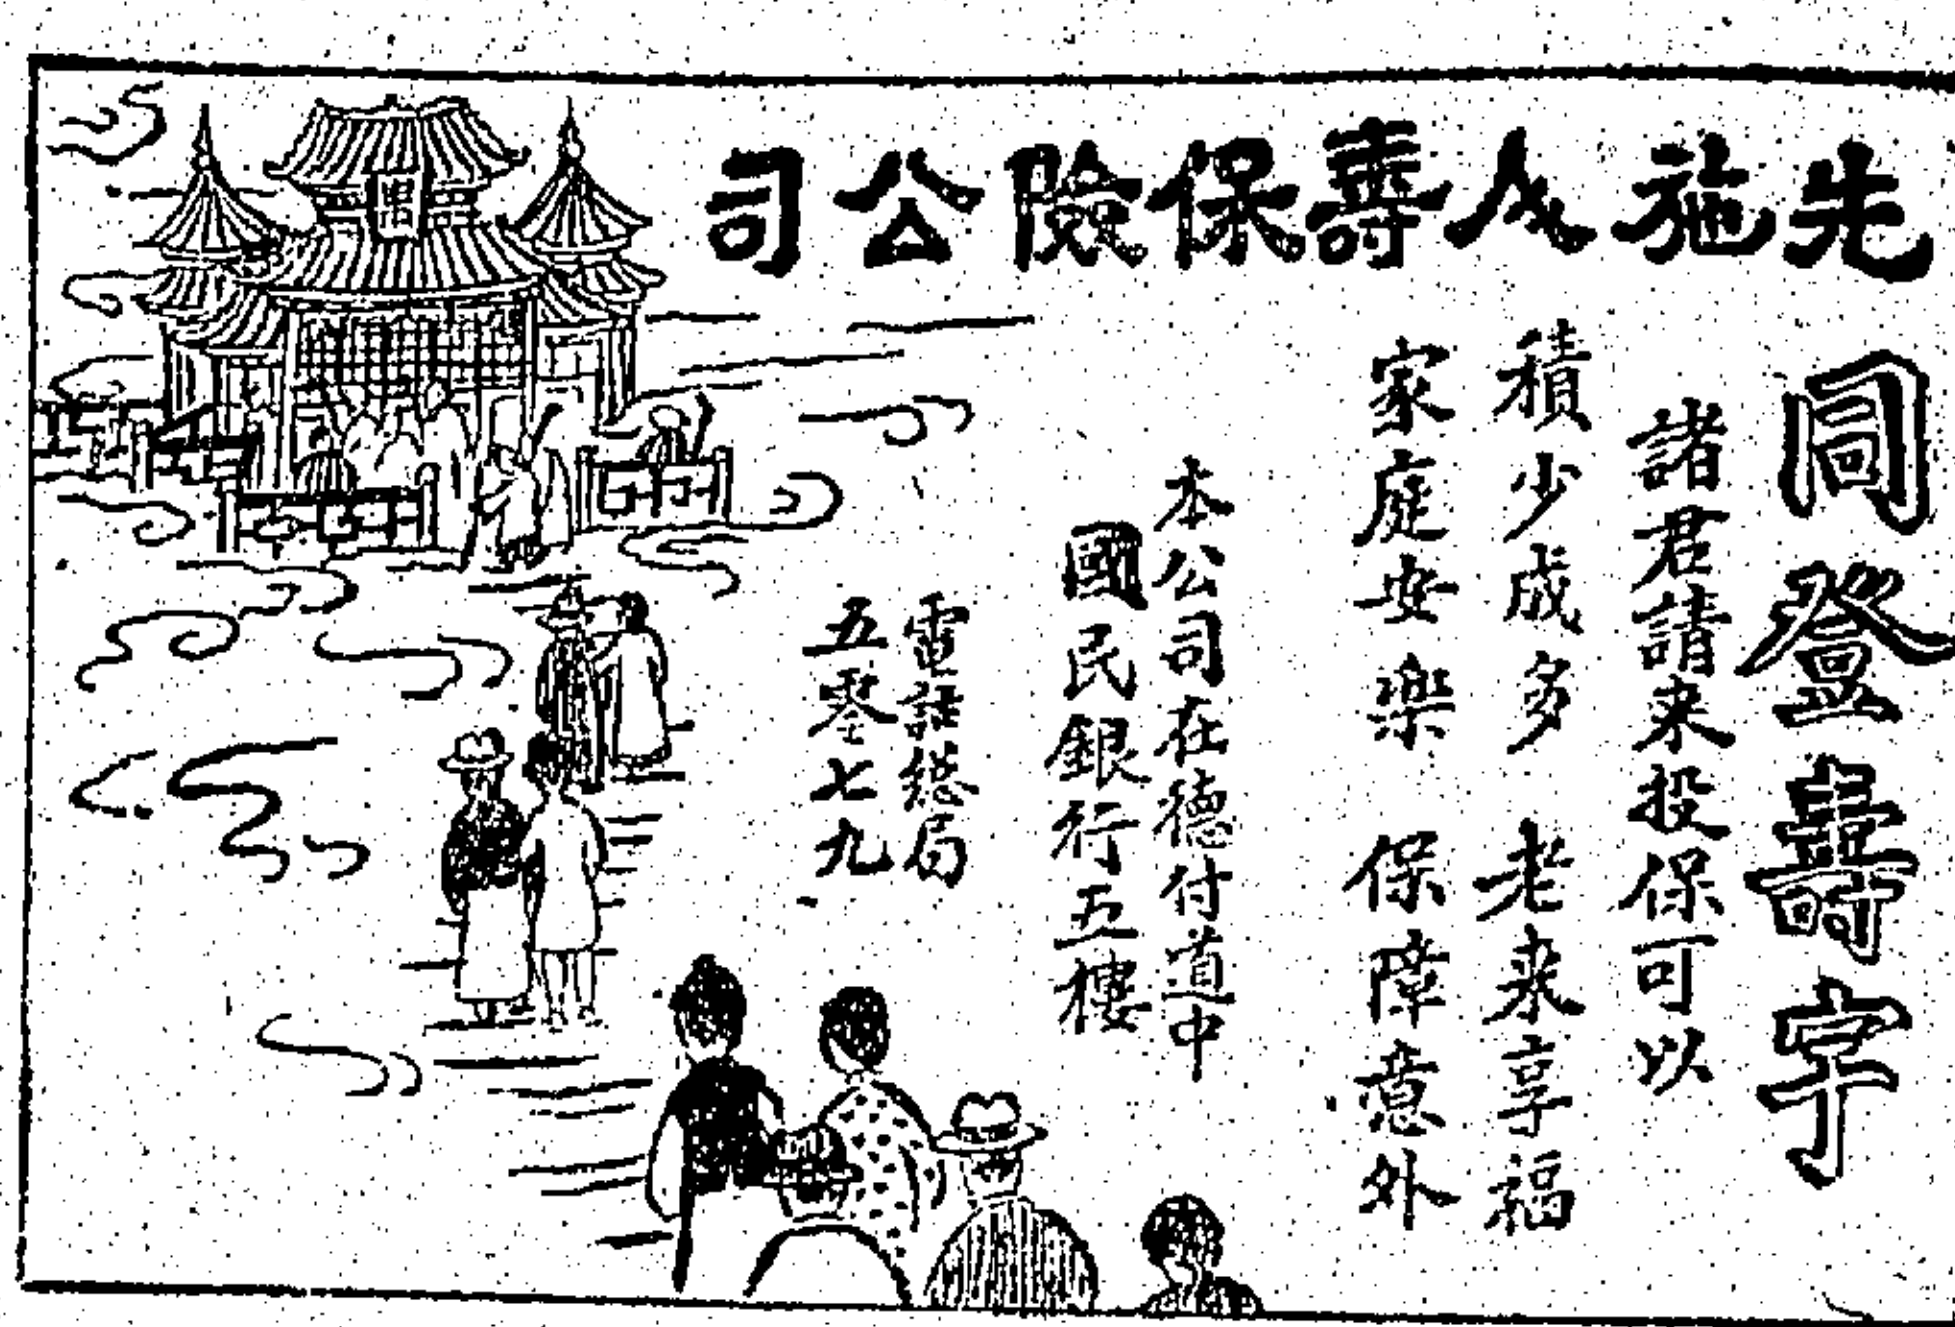 先施人壽保險公司
同登壽宇
諸君請来投保可以
積少成多 老来享福
家庭安樂 保障意外
本公司在德付道中
國民銀行五樓
電話総局
五零七九